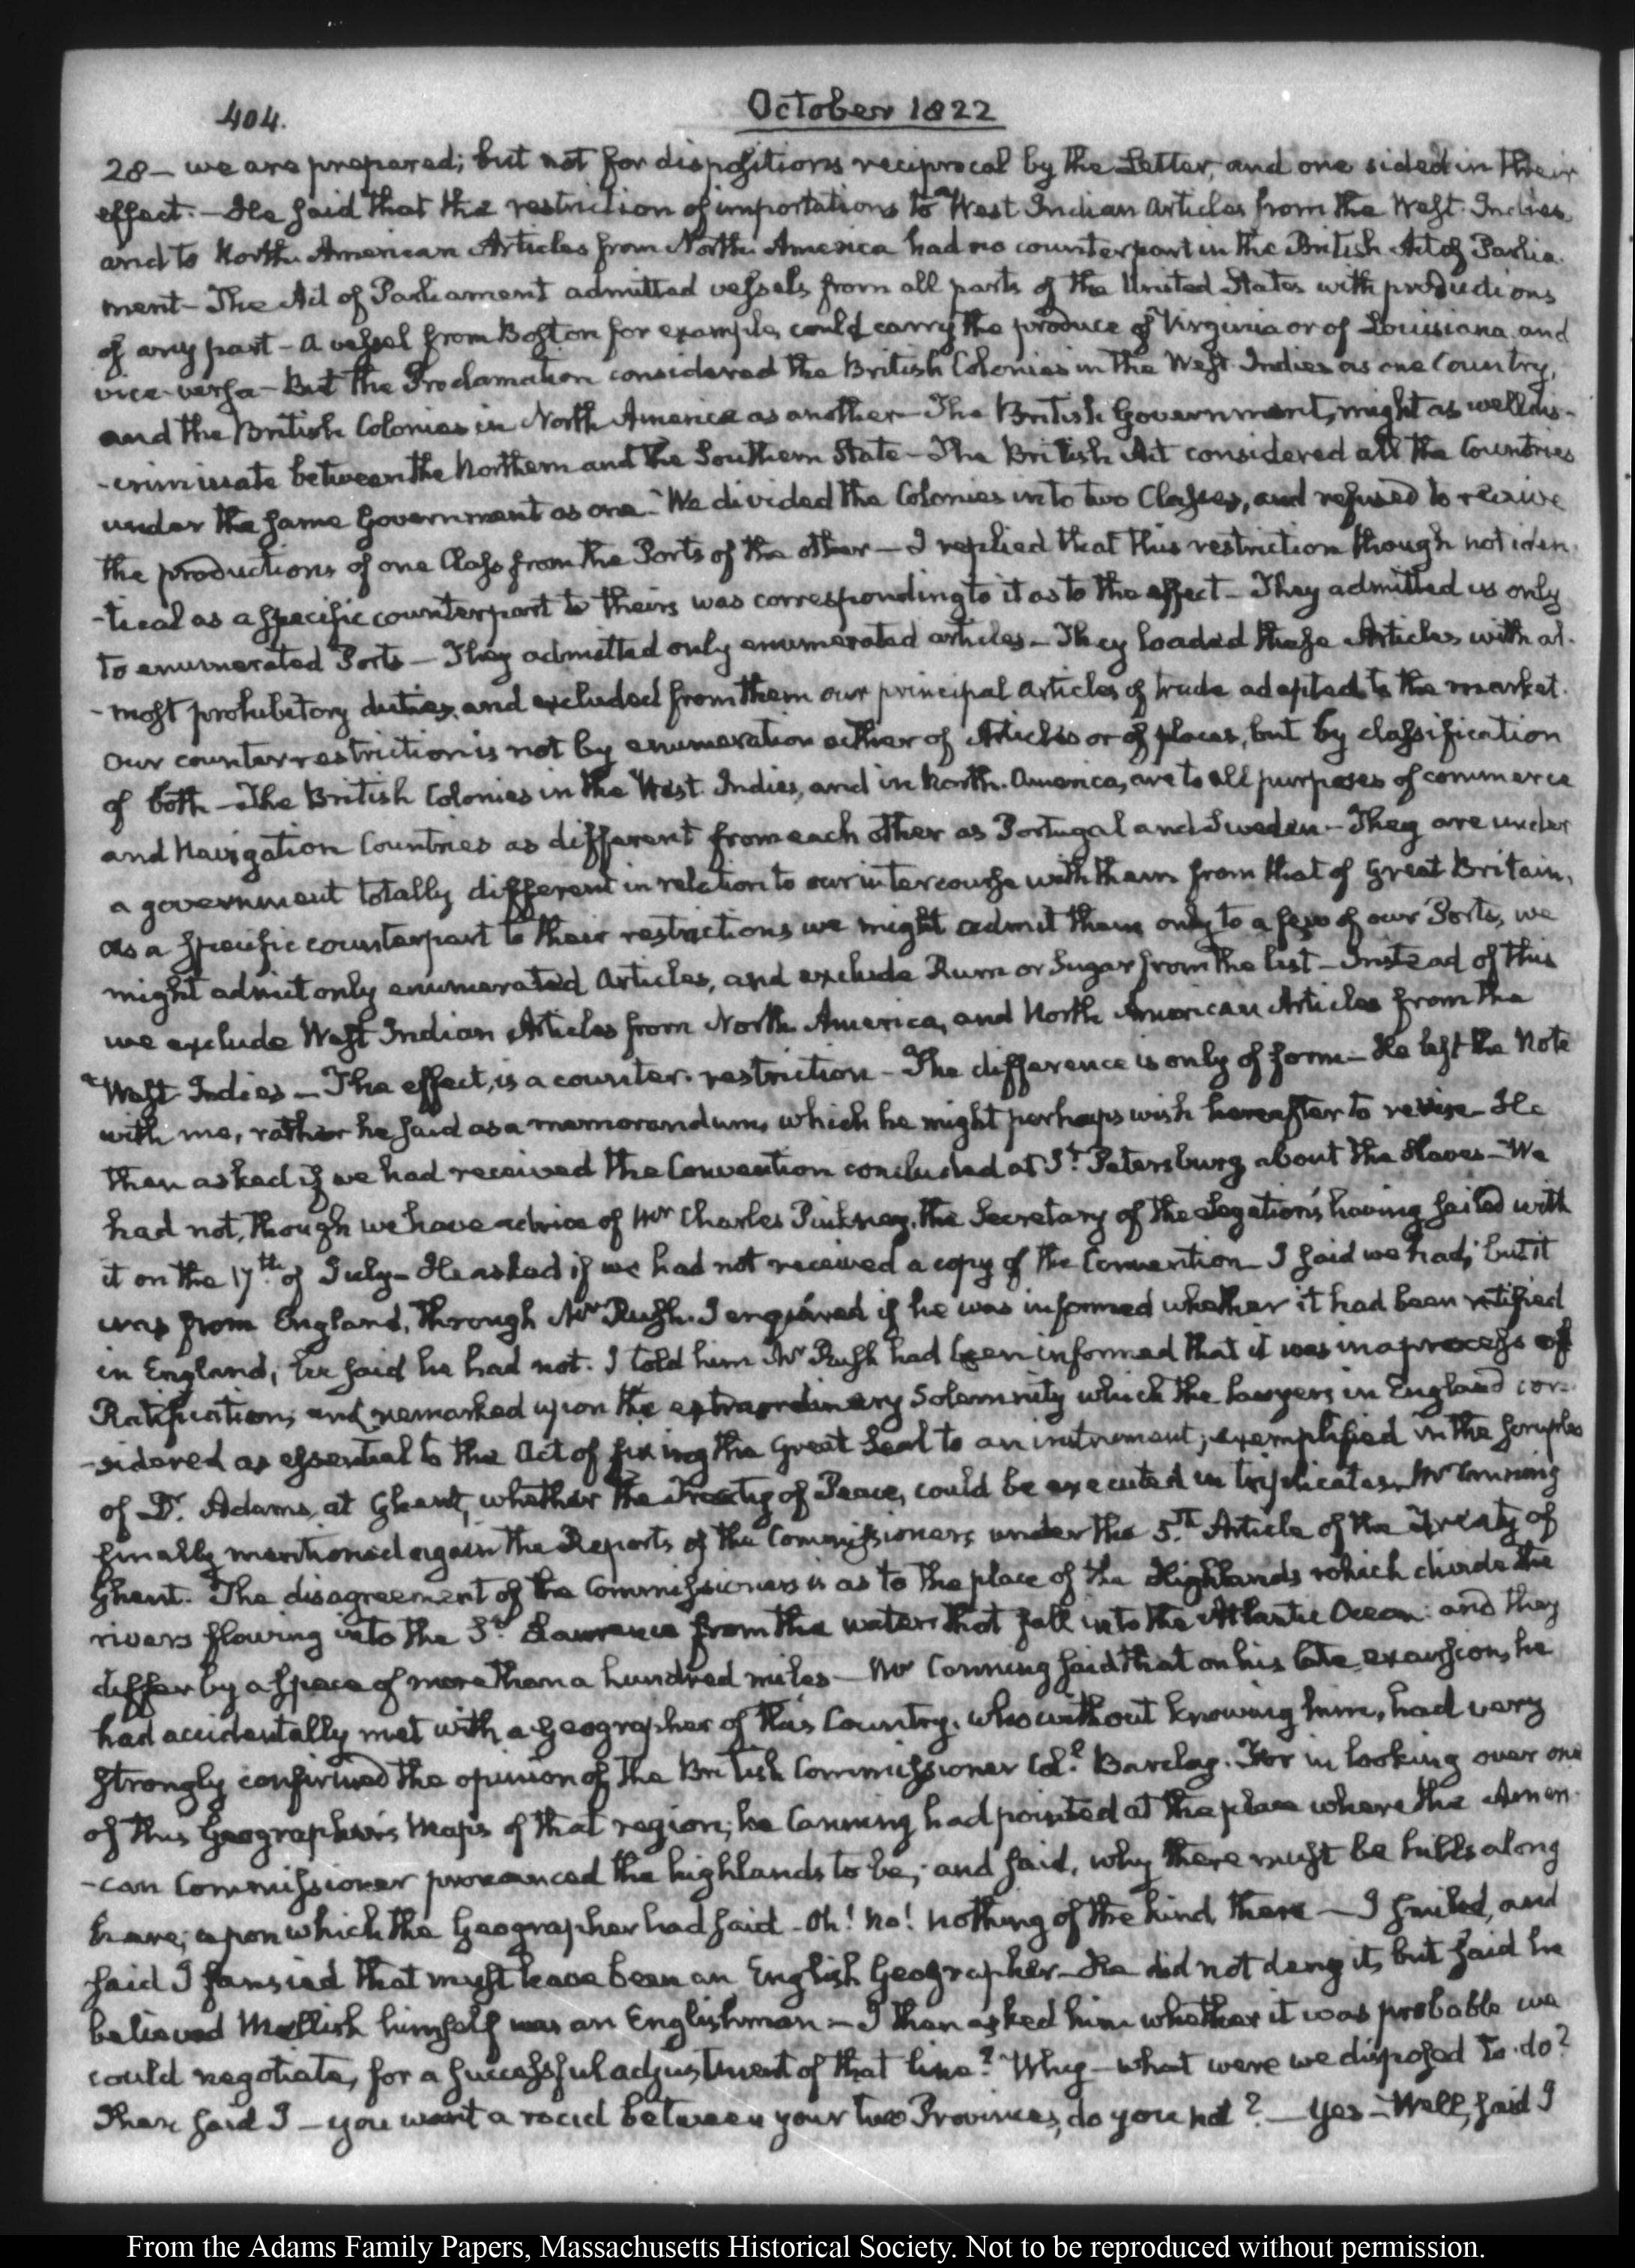 404.
October 1822
28 – we are prepared; but not for dispositions reciprocal by the Letter, and one sided in their
effect. – He said that the restriction of importations to West Indian Articles from the West. Indies
and to North American Articles from North America had no counterpart in the British Act of Parlia-
ment – The Act of Parliament admitted vessels from all parts of the United States with productions
of any part – a vessel from Boston for example, could carry the produce of Virginia or of Louisiana, and
vice-versa – But the Proclamation considered the British Colonies in the West. Indies as one Country,
and the British Colonies in North America as another – The British Government, might as well dis-
-criminate between the Northern and the Southern State – The British Act considered all the Countries
under the same Government as one – We divided the Colonies into two Classes, and refused to receive
the productions of one Class from the Ports of the other – I replied that this restriction though not iden-
-tical as a specific counterpart to theirs was corresponding to it as to the effect – They admitted us only
to enumerated Ports – They admitted only enumerated articles – They loaded these Articles with al-
-most prohibitory duties, and excluded from them our principal articles of trade adapted to the market.
Our counter restriction is not by enumeration either of Articles or of places, but by classification
of both – The British Colonies in the West. Indies, and in North. America, are to all purposes of commerce
and Navigation Countries as different from each other as Portugal and Sweden – They are under
a government totally different in relation to our intercourse with them from that of Great Britain,
As a specific counterpart to their restrictions we might admit them only to a few of our Ports, we
might admit only enumerated Articles, and exclude Rum or Sugar from the list – Instead of this
we exclude West Indian Articles from North America, and North American Articles from the
West Indies – The effect, is a counter-restriction – The difference is only of form – He left the Note
with me, rather he said as a memorandum, which he might perhaps wish hereafter to revise – He
then asked if we had received the Convention concluded at St. Petersburg about the Slaves – We
had not, though we have advice of Mr Charles Pinkney, the Secretary of the Legation's having sailed with
it on the 17th of July – He asked if we had not received a copy of the Convention – I said we had; but it
was from England, through Mr Rush. I enquired if he was informed whether it had been ratified
in England; he said he had not. I told him Mr Rush had been informed that it was in a process of
Ratification; and remarked upon the extraordinary Solemnity which the lawyers in England con-
-sidered as essential to the Act of fixing the Great Seal to an instrument; exemplified in the scruples
of Dr. Adams, at Ghent, whether the Treaty of Peace, could be executed in triplicates. Mr Canning
finally mentioned again the Reports of the Commissioners under the 5th Article of the Treaty of
Ghent. The disagreement of the Commissioners is as to the place of the Highlands which divide the
rivers flowing into the St. Lawrence from the waters that fall into the Atlantic Ocean: and they
differ by a space of more than a hundred miles – Mr Canning said that on his late excursion, he
had accidentally met with a Geographer of this Country, who without knowing him, had very
strongly confirmed the opinion of the British Commissioner Col. Barclay. For in looking over one
of this Geographer's Maps of that region; he Canning had pointed at the place where the Ameri-
-can Commissioner pronounced the highlands to be; and said, why there must be hills along
here; upon which the Geographer had said – Oh! no! nothing of the kind there – I smiled, and
said I fansied that must have been an English Geographer – He did not deny it, but said he
believed Mellish himself was an Englishman – I then asked him whether it was probable we
could negotiate, for a successful adjustment of that line? Why – what were we disposed to do?
Then said I – you want a road between your two Provinces, do you not? – Yes – Well, said I
From the Adams Family Papers, Massachusetts Historical Society. Not to be reproduced without permission.